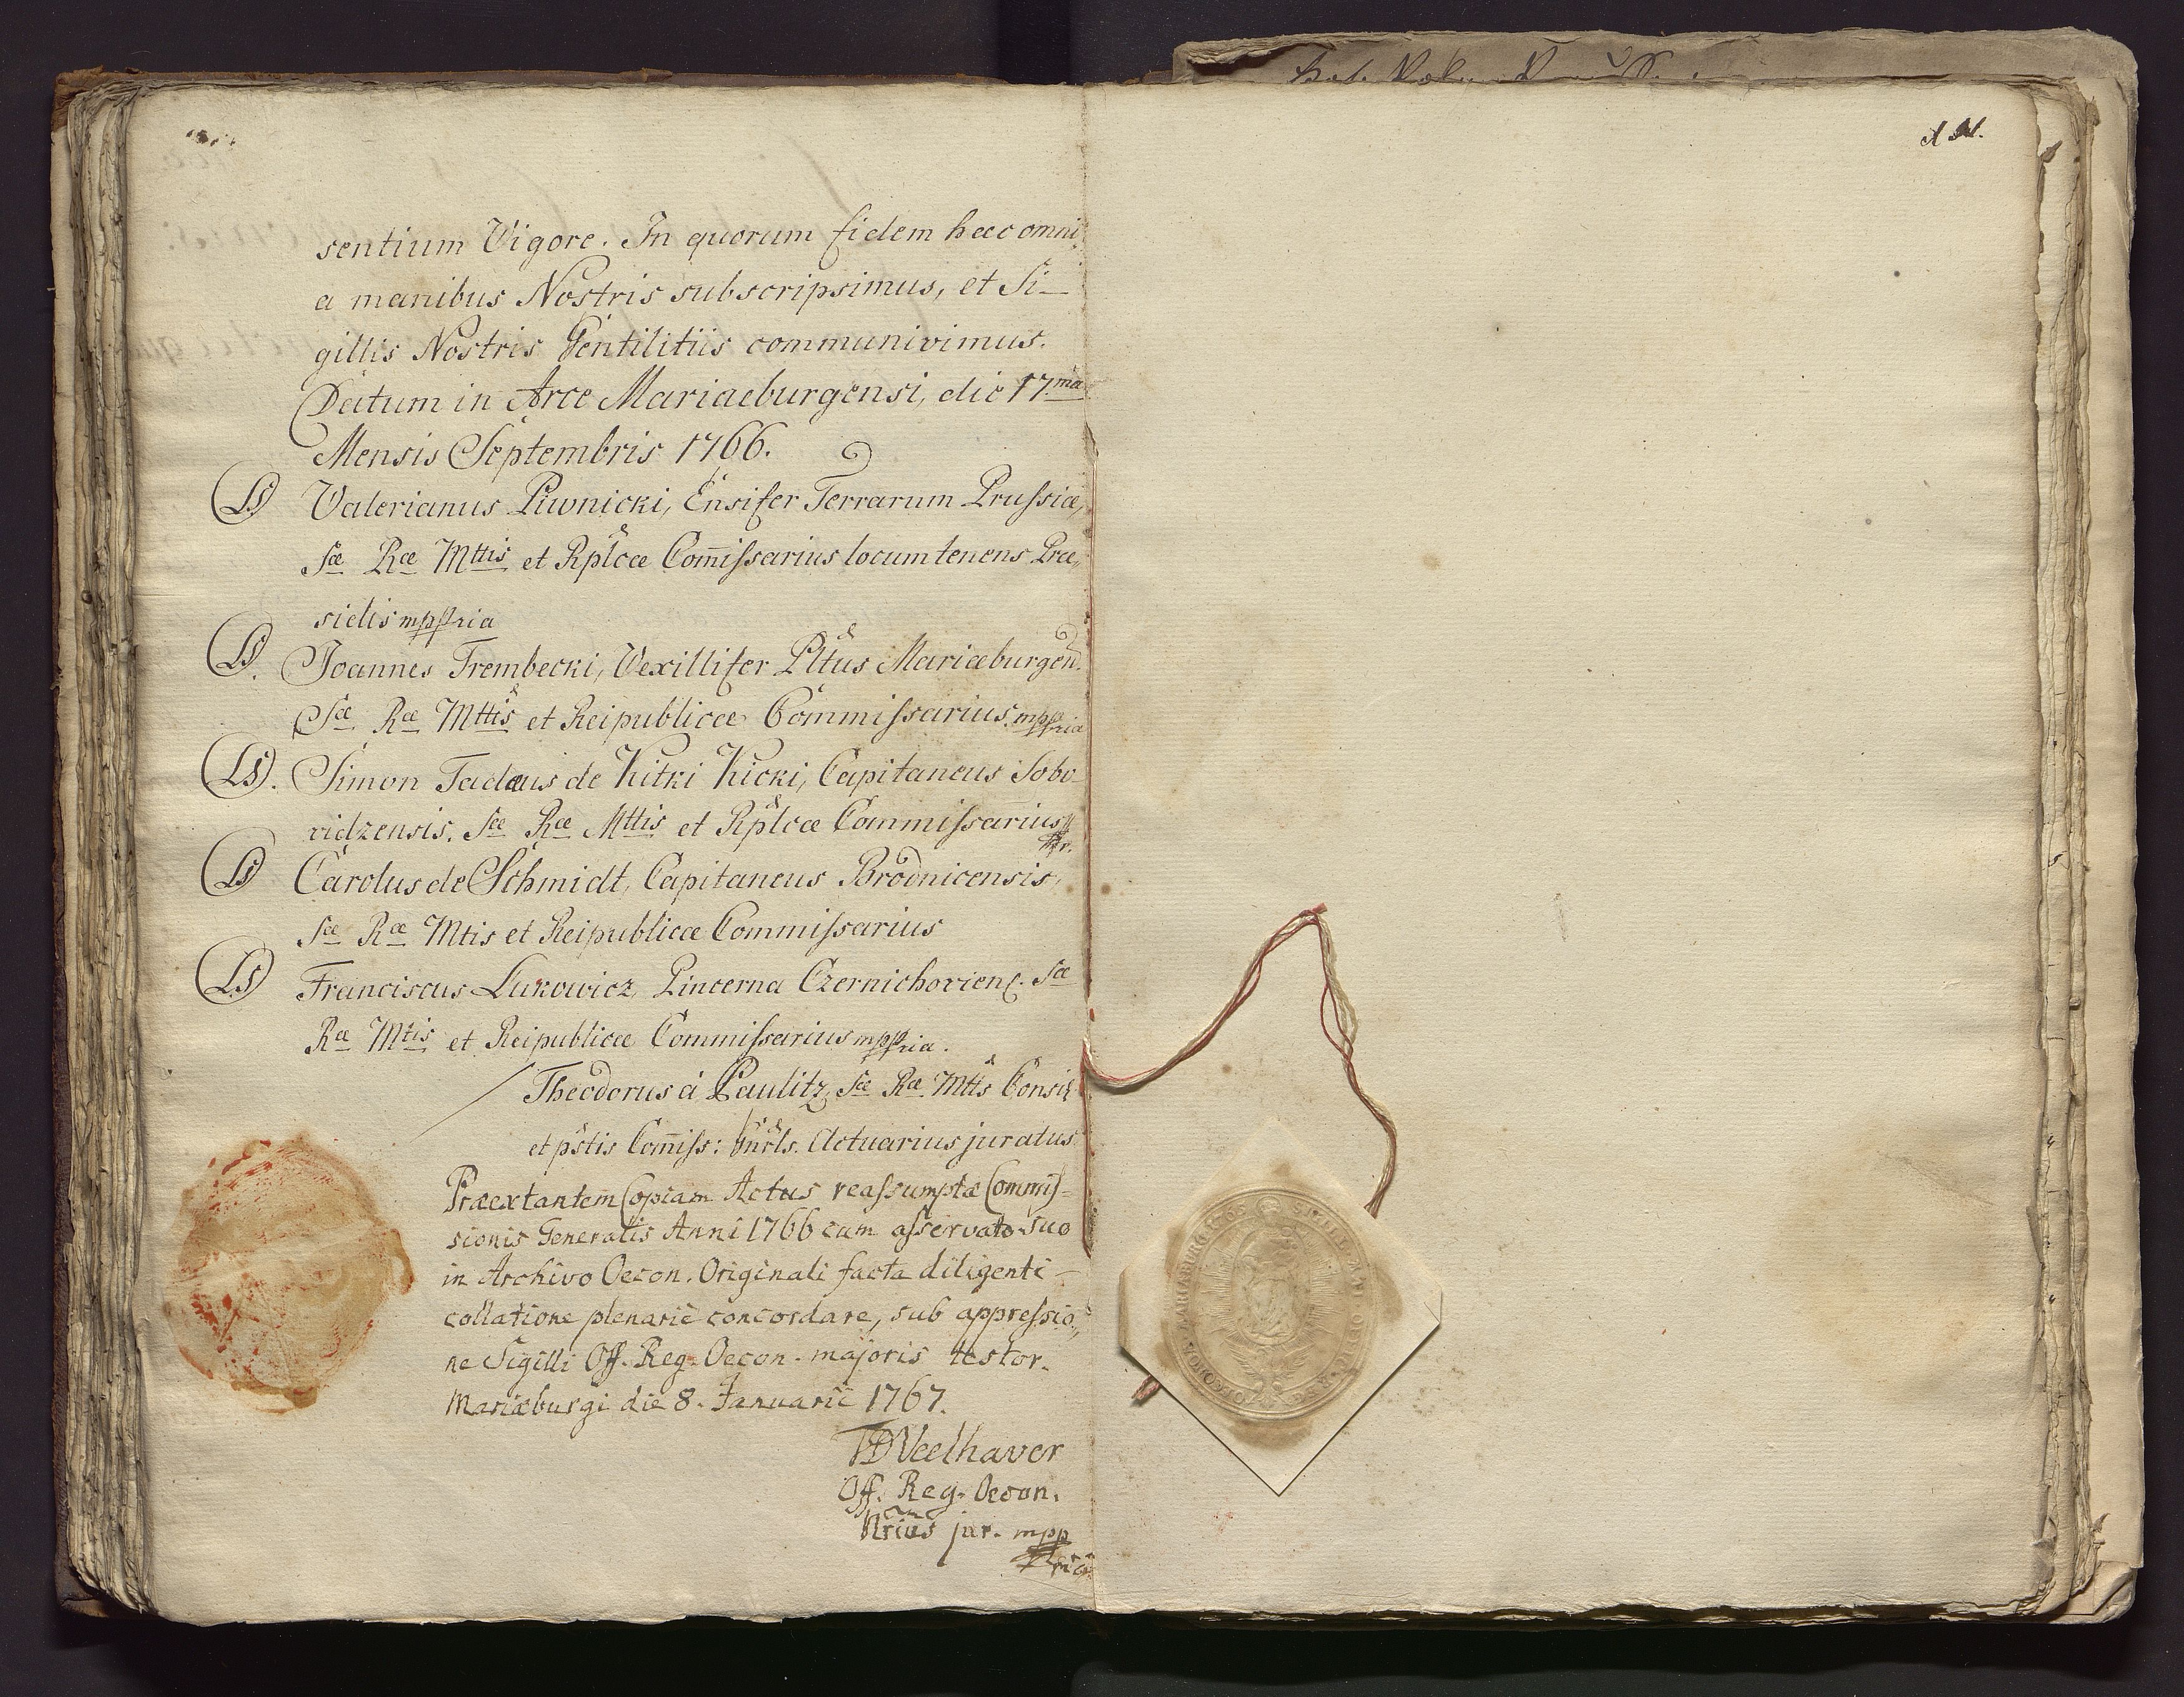 sentium Vigore. In quorum fidem haec omni
a manibus Nostris subscripsimus, et Si_
gillis Nostris Gentilitiis communivimus.
Datum in Arce Mariaeburgensi, die 17.ma
Mensis Septembris 1766.
LS Valerianus Piwnicki, Ensifer Terrarum Prussiæ,
Sæ Ræ Mttis et Rplcæ Com̄issarius locumtenens Præ„
sidis mppria
LS. Joannes Trembecki, Vexillifer Pltus Mariæburgen.
Sæ Ræ Mttis et Reipublicæ Commissarius mppria
LS. Simon Tadæus de Kitki Kicki, Capitaneus Sobo-
vidzensis. Sæ Ræ Mttis et Rplcæ Commissarius
LS Carolus de Schmidt, Capitaneus Brodnicensis,
Sæ Ræ Mtis et Reipublicæ Commissarius
LS Franciscus Lukowicz, Pincerna Czernichovien. Sæ
Ræ Mtis et Reipublicæ Commissarius mppria.
Theodorus à Paulitz, Sæ Ræ Mtts Consil
et pstis Com̄iss: Gnrls. Actuarius juratus
Præextantem Copiam Actus reassumptæ Commis=
sionis Generalis Anni 1766 cum asservato suo
in Archivo Oecon. Originali facta diligenti
collatione plenarie concordare, sub appressio„
ne Sigilli Off. Reg. Oecon. majoris testor.
Mariæburgi die 8. Januarii 1767.
TD Veelhaver
Off. Reg. Oecon.
Nrius jur. mpp
ria